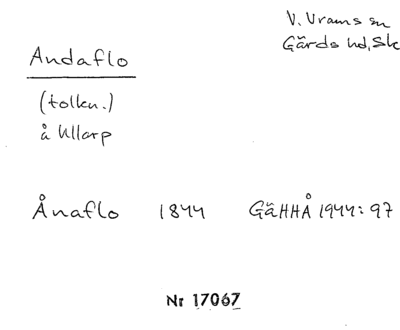 V. Vrams sn
Gärds hd, Sk
Andaflo
(tolkn.)
å Ullarp
Ånaflo 1844 GäHHÅ 1944: 97
Nr 17067